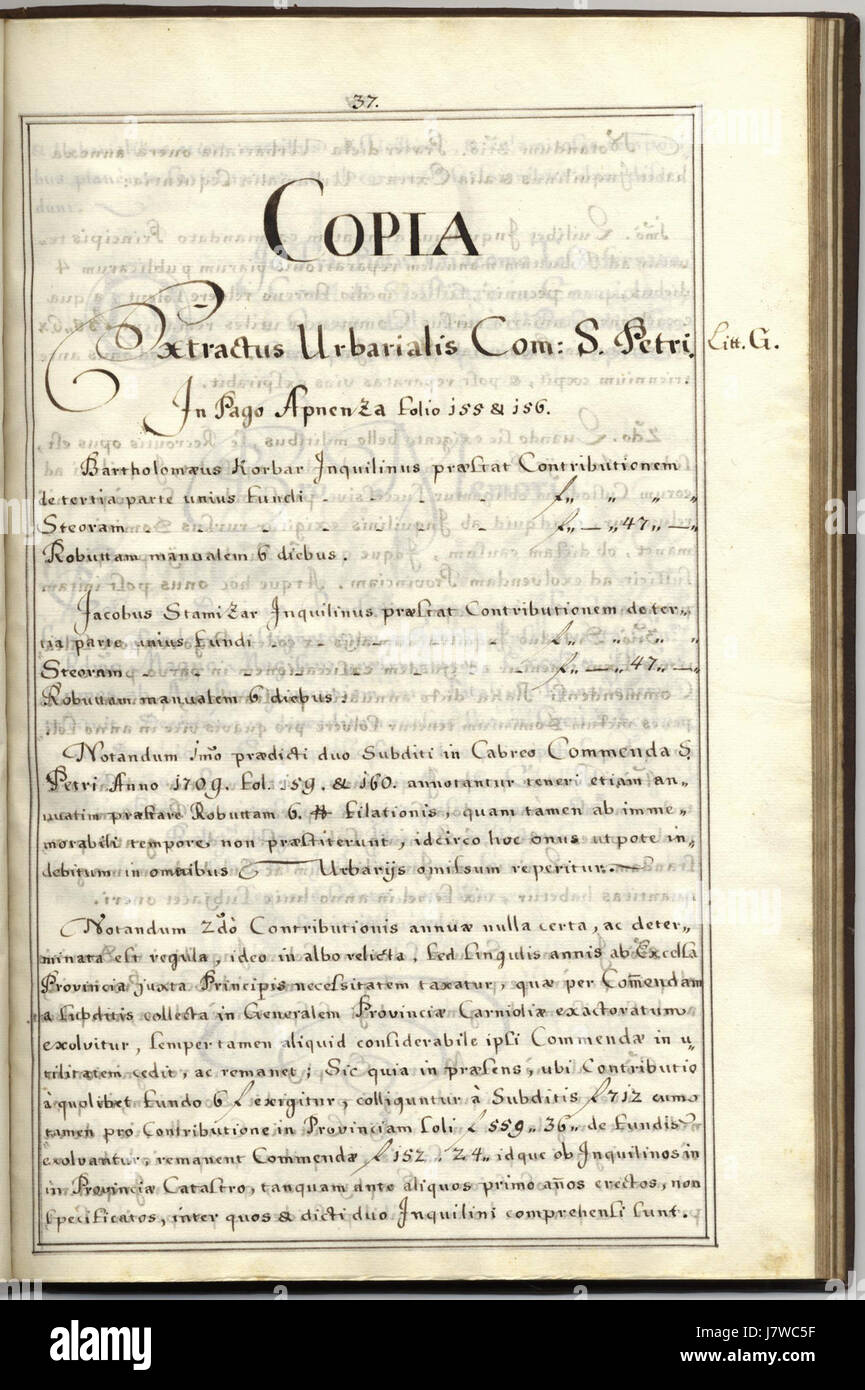 37.
COPIA
Extractus Urbarialis Com: S. Petri.
Litt. G.
In Pago Apnenza folio 155 & 156.
Bartholomæus Korbar Inquilinus præstat Contributionem
de tertia parte unius fundi - - - - - f„ „ „ „
Steoram - - - - - - - f„ — „ 47„ — „
Robottam manualem 6 diebus.
Jacobus Stamizar Inquilinus præstat Contributionem de ter„
tia parte unius fundi - - - - - - f„ „ „ „
Steoram - - - - - - - f„ — „ 47„ — „
Robottam manualem 6 diebus.
Notandum 1mo prædicti duo Subditi in Cabreo Commenda S.
Petri Anno 1709. fol. 159. & 160. annotantur teneri etiam an„
nuatim præstare Robottam 6. ℔ filationis, quam tamen ab imme„
morabili tempore non præstiterunt, idcirco hoc onus utpote in„
debitum in omnibus Urbarijs omissum reperitur. —
Notandum 2dò Contributionis annuæ nulla certa, ac deter„
minata est regula, ideo in albo relicta, sed singulis annis ab Excelsa
Provincia juxta Principis necessitatem taxatur, quæ per Com̄endam
a subditis collecta in Generalem Provinciæ Carnioliæ exactoratum
exolvitur, semper tamen aliquid considerabile ipsi Commendæ in u„
tilitatem cedit, ac remanet; Sic quia in præsens, ubi Contributio
à quolibet fundo 6 f exigitur, colliguntur à Subditis f 712 cum
tamen pro Contributione in Provinciam soli f 559„ 36„ de fundis
exolvantur, remanent Commendæ f 152„ 24„ idque ob Inquilinos in
in Provinciæ Catastro, tanquam ante aliquos primo an̄os erectos, non
specificatos, inter quos & dicti duo Inquilini comprehensi sunt.
alamy
Image ID: J7WC5F
www.alamy.com